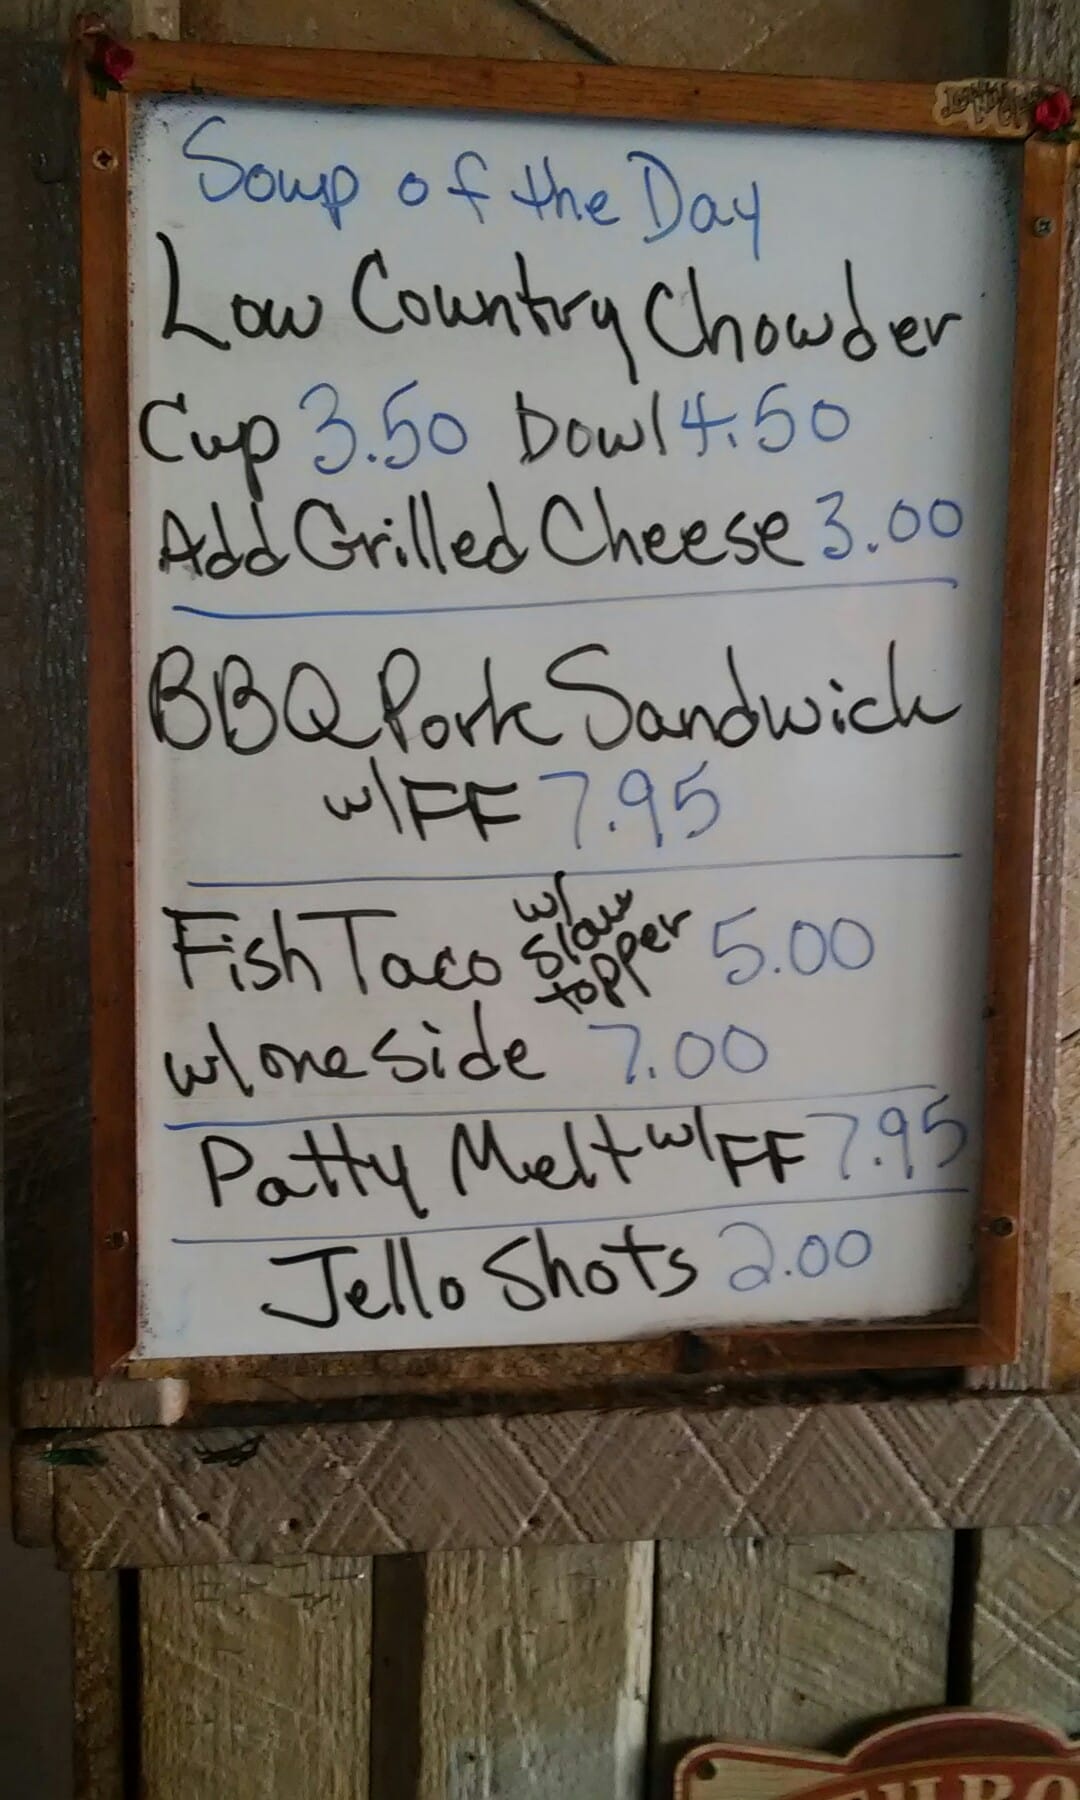 Soup of the Day
Low Country Chowder
Cup 3.50 Bowl 4.50
Add Grilled Cheese 3.00
BBQ Pork Sandwich
w/FF 7.95
Fish Taco w/ slaw topper 5.00
w/ one side 7.00
Patty Melt w/FF 7.95
Jello Shots 2.00